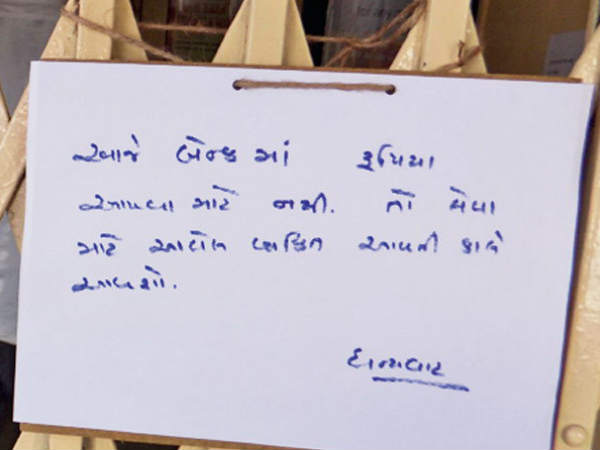 આજે બેન્ક માં રૂપિયા
આપવા માટે નથી. તો લેવા
માટે આવેલ વ્યક્તિ આવતી કાલે
આવશો.
ધન્યવાદ